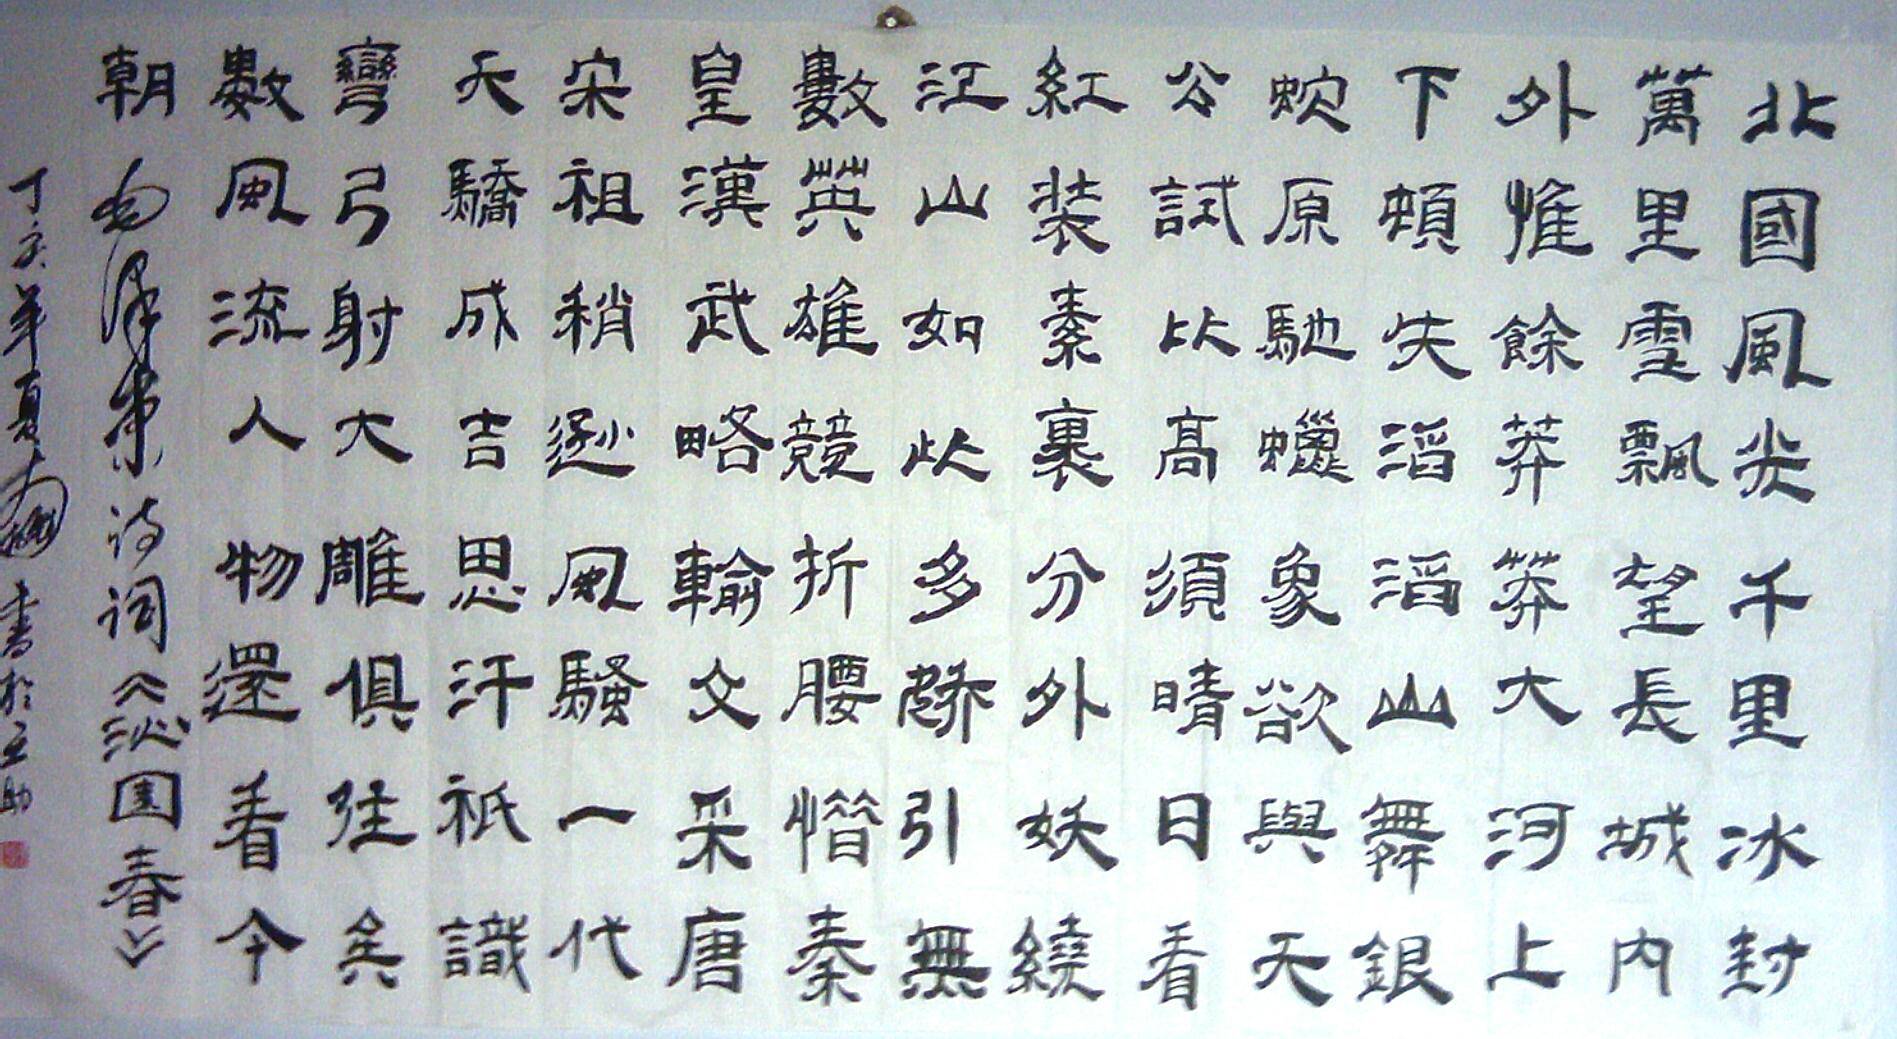 北國風光千里冰封
萬里雪飄望長城内
外惟餘莽莽大河上
下頓失滔滔山舞銀
蛇原馳蠟象欲與天
公試比高須晴日看
紅装素裹分外妖繞
江山如此多嬌引無
數英雄競折腰惜秦
皇漢武略輸文采唐
宋祖稍遜風騷一代
天驕成吉思汗祇識
彎弓射大雕俱往矣
數風流人物還看今
朝 毛泽东诗词《沁園春》
丁亥年夏書於